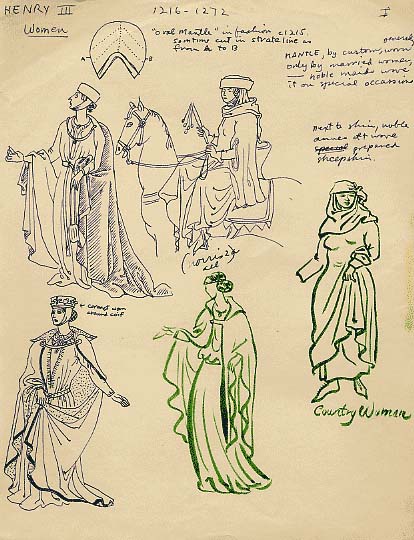 HENRY III
1216-1272
I
Women
"Oval Mantle" in fashion c1215
somtime cut in strate line as
from A to B
A
B
MANTLE, by custom, worn
only by married women,
noble maids wore
it on special occassions
next to skin, noble
wore
prepared
sheepskin.
coronet worn
around coif
Country Woman